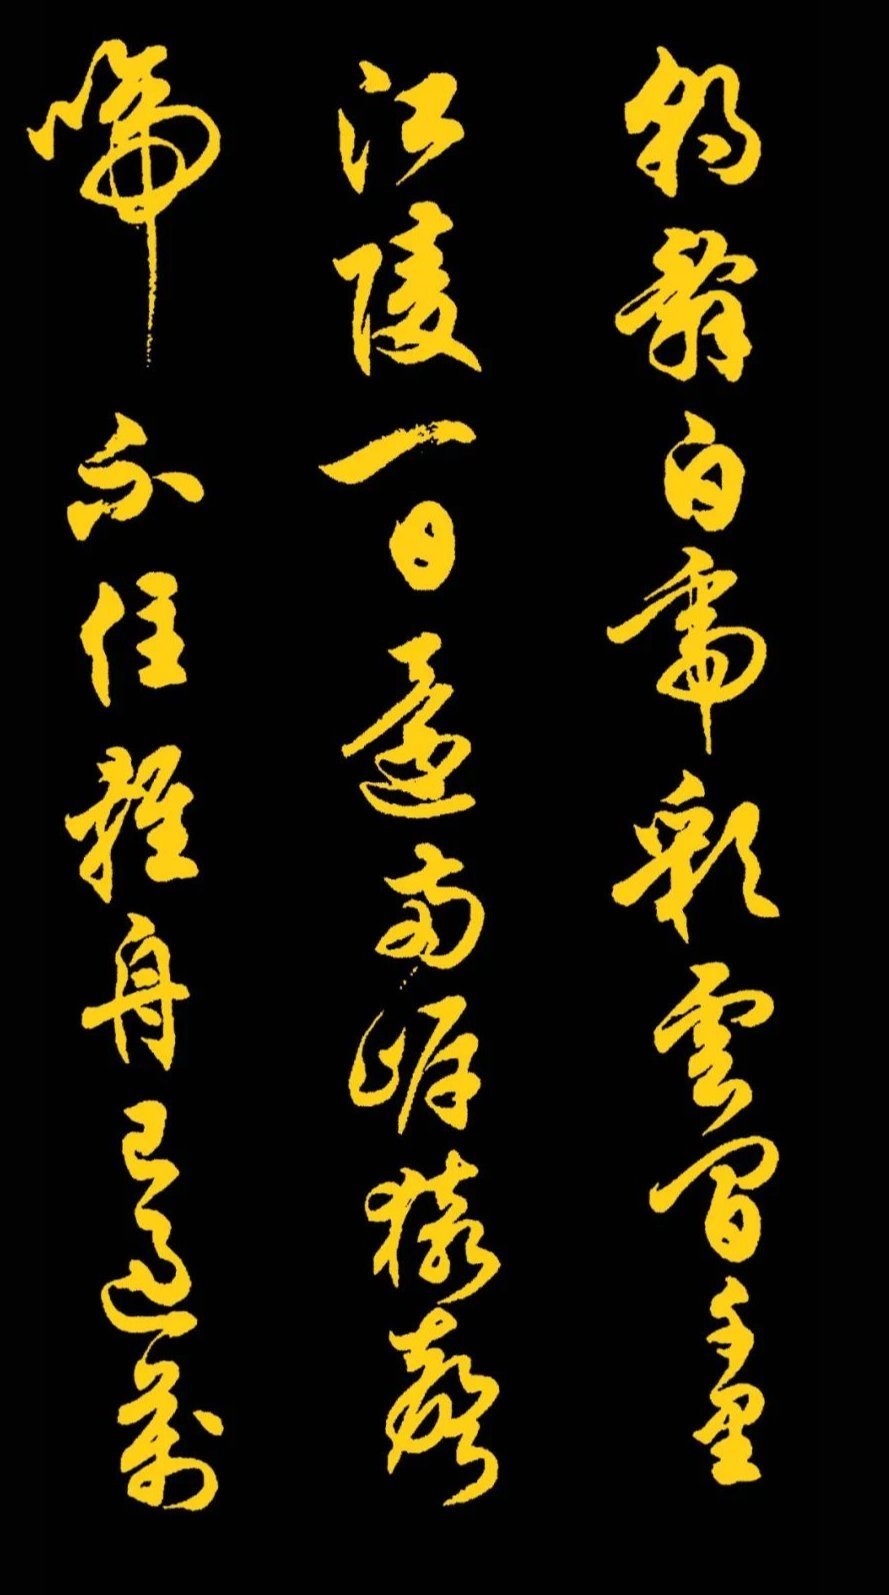 朝辞白帝彩雲間千里
江陵一日還兩岸猿聲
啼不住輕舟已過萬